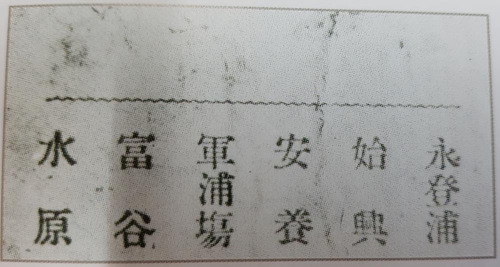 永登浦
始興
安養
軍浦塲
富谷
水原